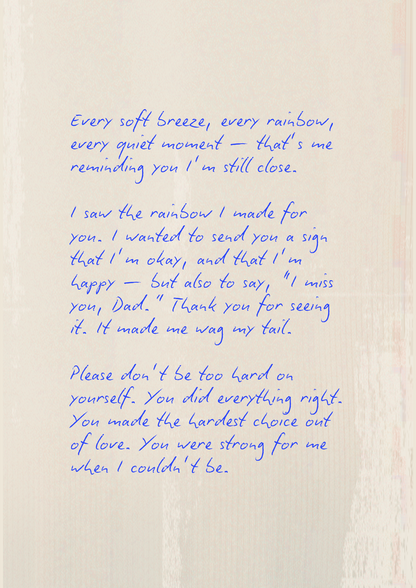 Every soft breeze, every rainbow,
every quiet moment — that's me
reminding you I'm still close.
I saw the rainbow I made for
you. I wanted to send you a sign
that I'm okay, and that I'm
happy — but also to say, "I miss
you, Dad." Thank you for seeing
it. It made me wag my tail.
Please don't be too hard on
yourself. You did everything right.
You made the hardest choice out
of love. You were strong for me
when I couldn't be.